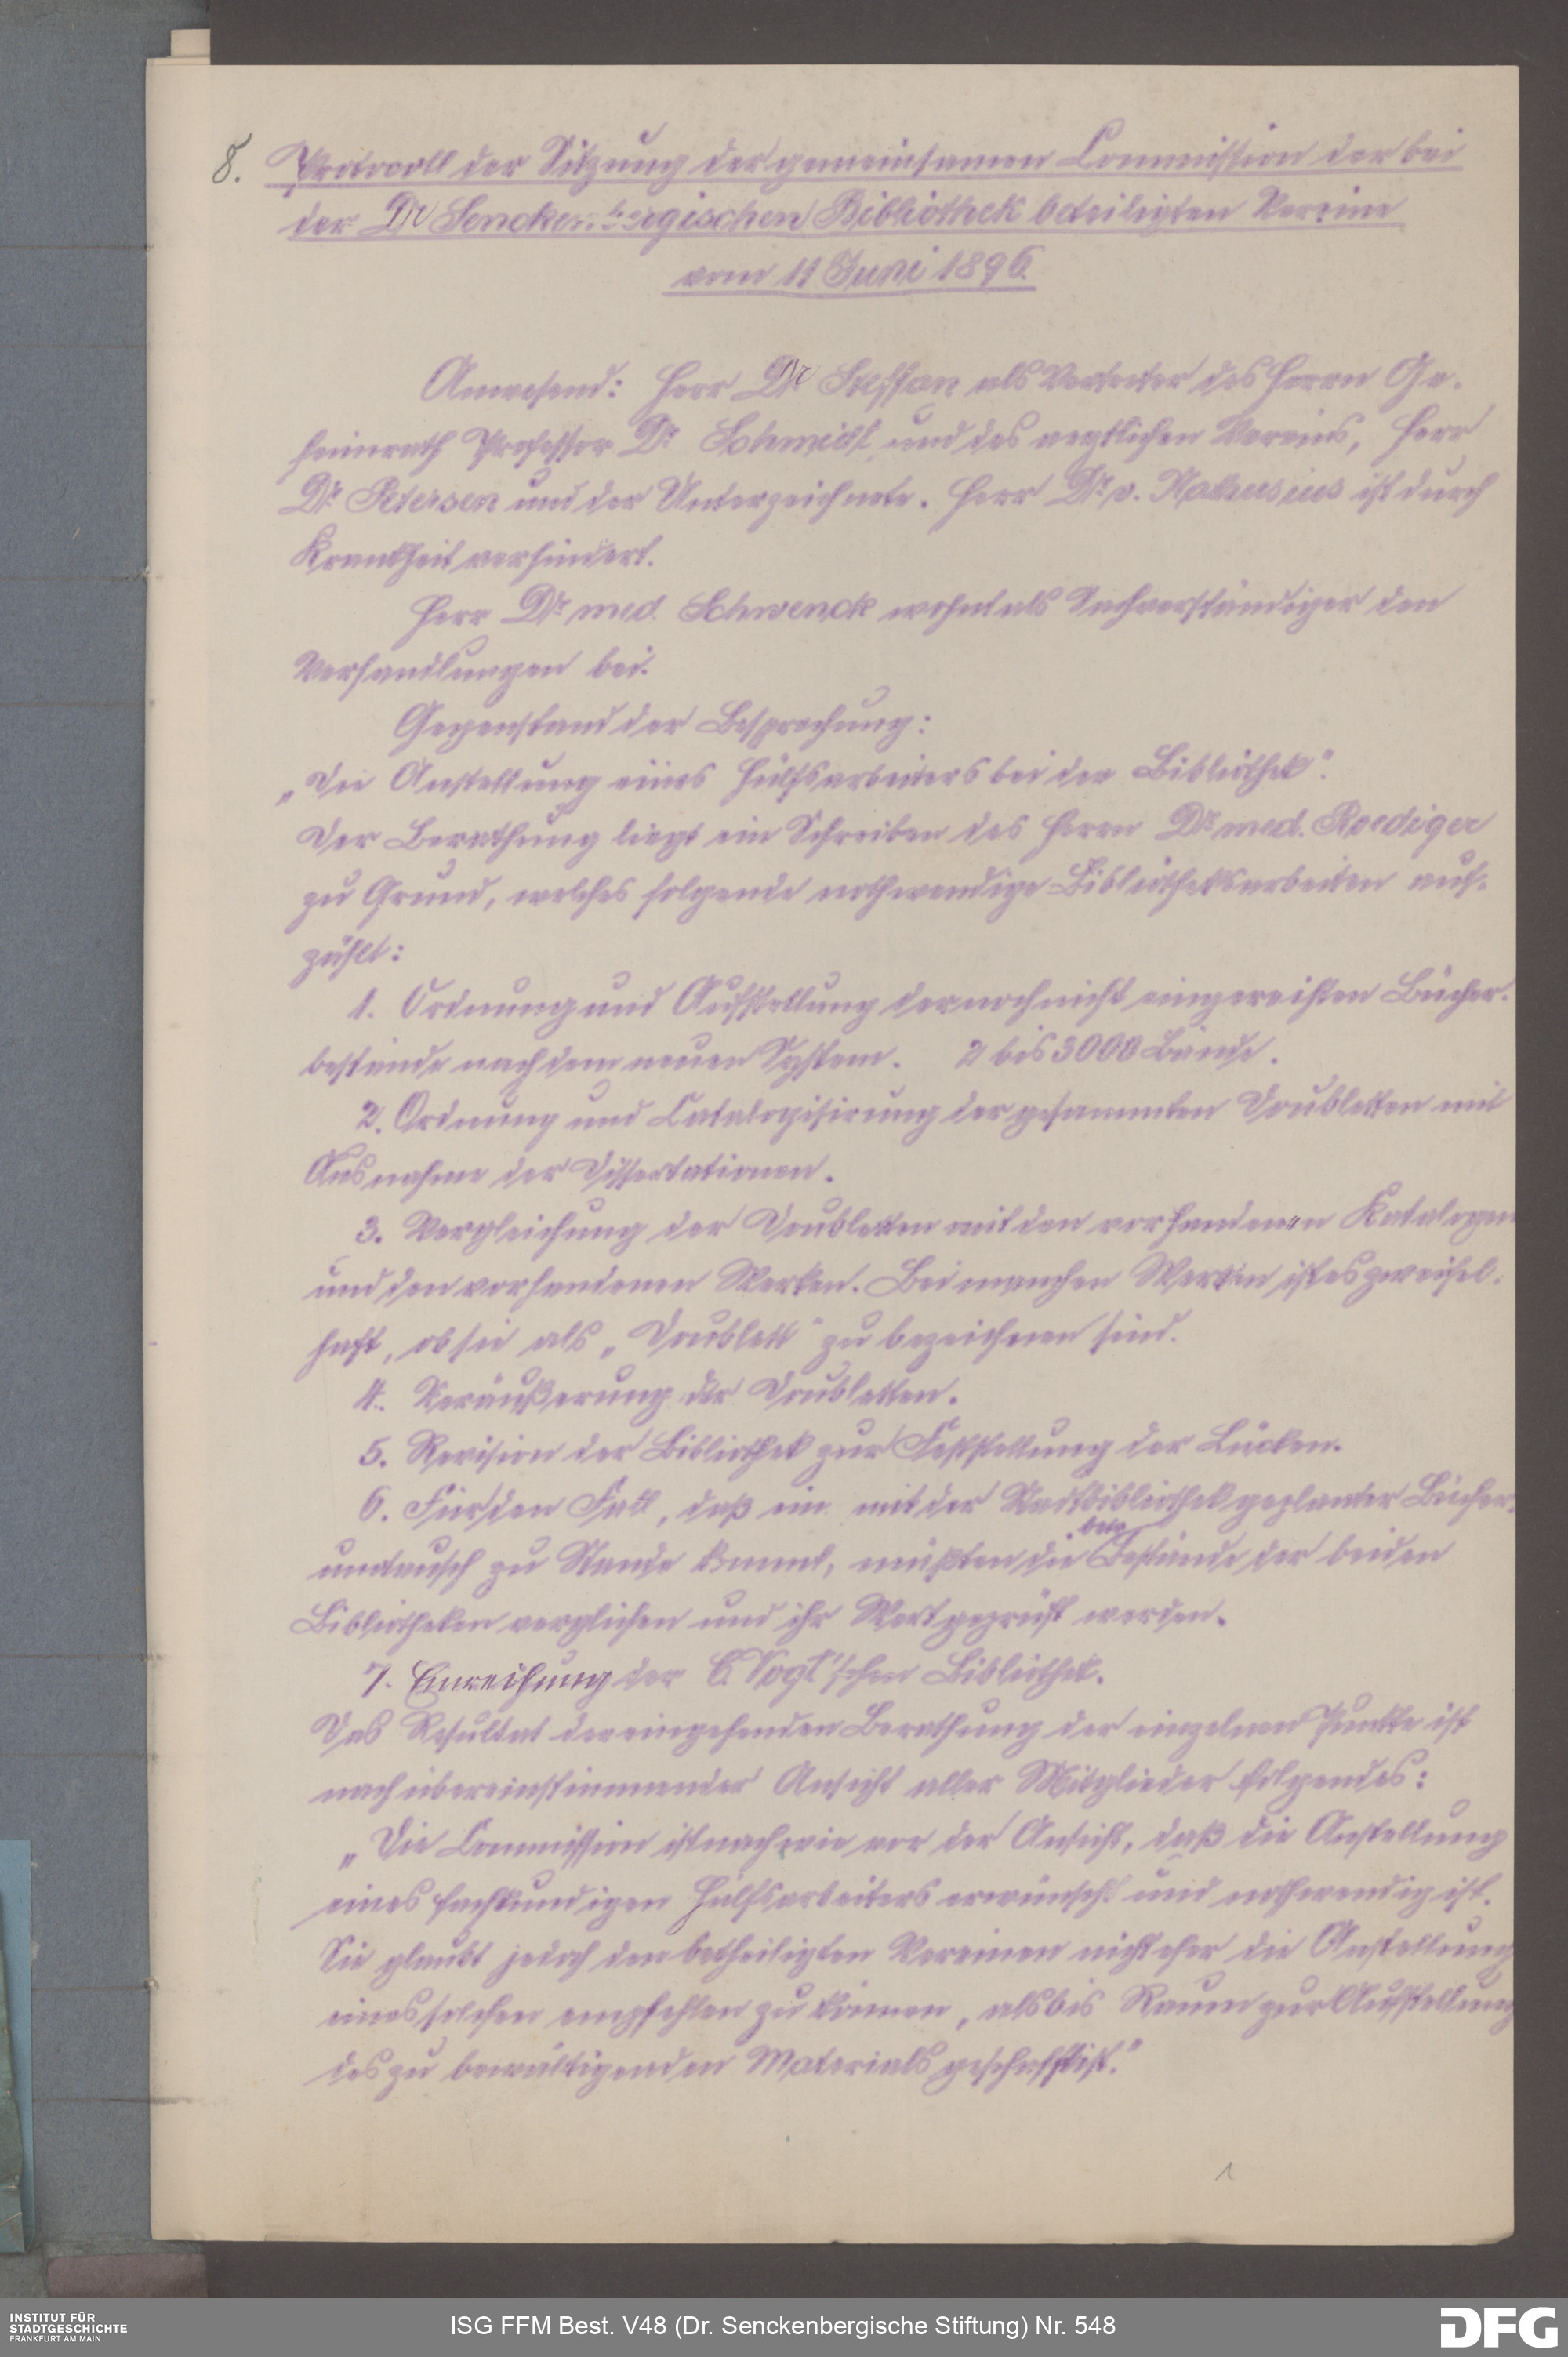 8. Protocoll der Sitzung der gemeinsamen Commission der bei
der Dr Senckenbergischen Bibliothek beteiligten Vereine
vom 11 Juni 1896.
Anwesend: Herr Dr Steffan als Vertreter des Herrn Ge-
heimrath Professor Dr Schmidt und des aerztlichen Vereins, Herr
Dr Petersen und der Unterzeichnete. Herr Dr v. Nathusius ist durch
Krankheit verhindert.
Herr Dr med. Schwenck wohnt als Sachverständiger den
Verhandlungen bei.
Gegenstand der Besprechung:
„Die Anstellung eines Hülfsarbeiters bei der Bibliothek".
Der Berathung liegt ein Schreiben des Herrn Dr med. Roediger
zu Grund, welches folgende nothwendige Bibliotheksarbeiten auf-
zählt:
1. Ordnung und Aufstellung der noch nicht eingereihten Bücher-
bestände nach dem neuen System. 2 bis 3000 Bände.
2. Ordnung und Catalogisirung der gesammten Doubletten mit
Ausnahme der Dissertationen.
3. Vergleichung der Doubletten mit den vorhandenen Katalogen
und den vorhandenen Werken. Bei manchen Werken ist es zweifel-
haft, ob sie als „Doublett" zu bezeichnen sind.
4. Veräußerung der Doubletten.
5. Revision der Bibliothek zur Feststellung der Lücken.
6. Für den Fall, daß ein mit der Stadtbibliothek geplanter Bücher-
umtausch zu Stande kommt, müßten die betr. Bestände der beiden
Bibliotheken verglichen und ihr Wert geprüft werden.
7. Einreihung der C. Vogt'schen Bibliothek.
Das Resultat der eingehenden Berathung der einzelnen Punkte ist
nach übereinstimmender Ansicht aller Mitglieder folgendes:
„Die Commission ist nach wie vor der Ansicht, daß die Anstellung
eines fachkundigen Hülfsarbeiters erwünscht und nothwendig ist.
Sie glaubt jedoch den betheiligten Vereinen nicht eher die Anstellung
eines solchen empfehlen zu können, als bis Raum zur Aufstellung
des zu bewältigenden Materials geschafft ist."
1
INSTITUT FÜR
STADTGESCHICHTE
FRANKFURT AM MAIN
ISG FFM Best. V48 (Dr. Senckenbergische Stiftung) Nr. 548
DFG